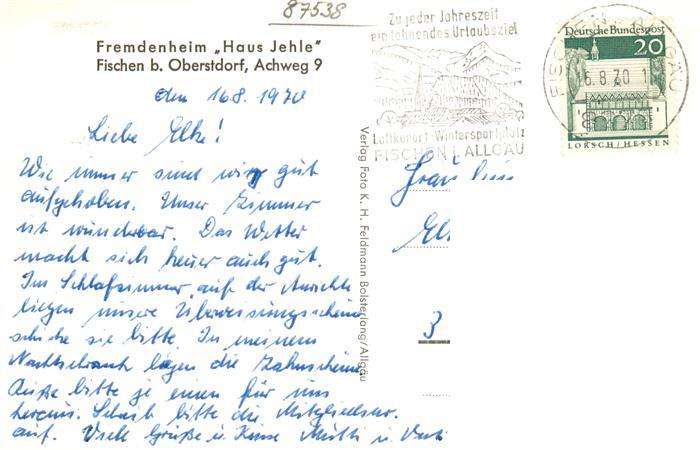 87538
Zu jeder Jahreszeit
ein lohnendes Urlaubsziel
Luftkurort - Wintersportplatz
FISCHEN I. ALLGÄU
FISCHEN ALLGÄU
16.8.70
Deutsche Bundespost
20
LORSCH/HESSEN
Fremdenheim „Haus Jehle"
Fischen b. Oberstdorf, Achweg 9
den 16.8. 1970
Liebe Elke!
Wie immer sind wir gut
aufgehoben. Unser Zimmer
ist wunderbar. Das Wetter
macht sich heuer auch gut.
Im Schlafzimmer auf der Anrichte
liegen unsere Überweisungsscheine
schicke sie bitte. In meinem
Nachtschrank liegen die Zahnscheine
bitte je einen für uns
heraus. Schreib bitte die Mitgliedsnr.
auf. Viele Grüße u. Küsse Mutti u. Vati
Verlag Foto K. H. Feldmann Bolsterlang/Allgäu
Fräulein
El
3